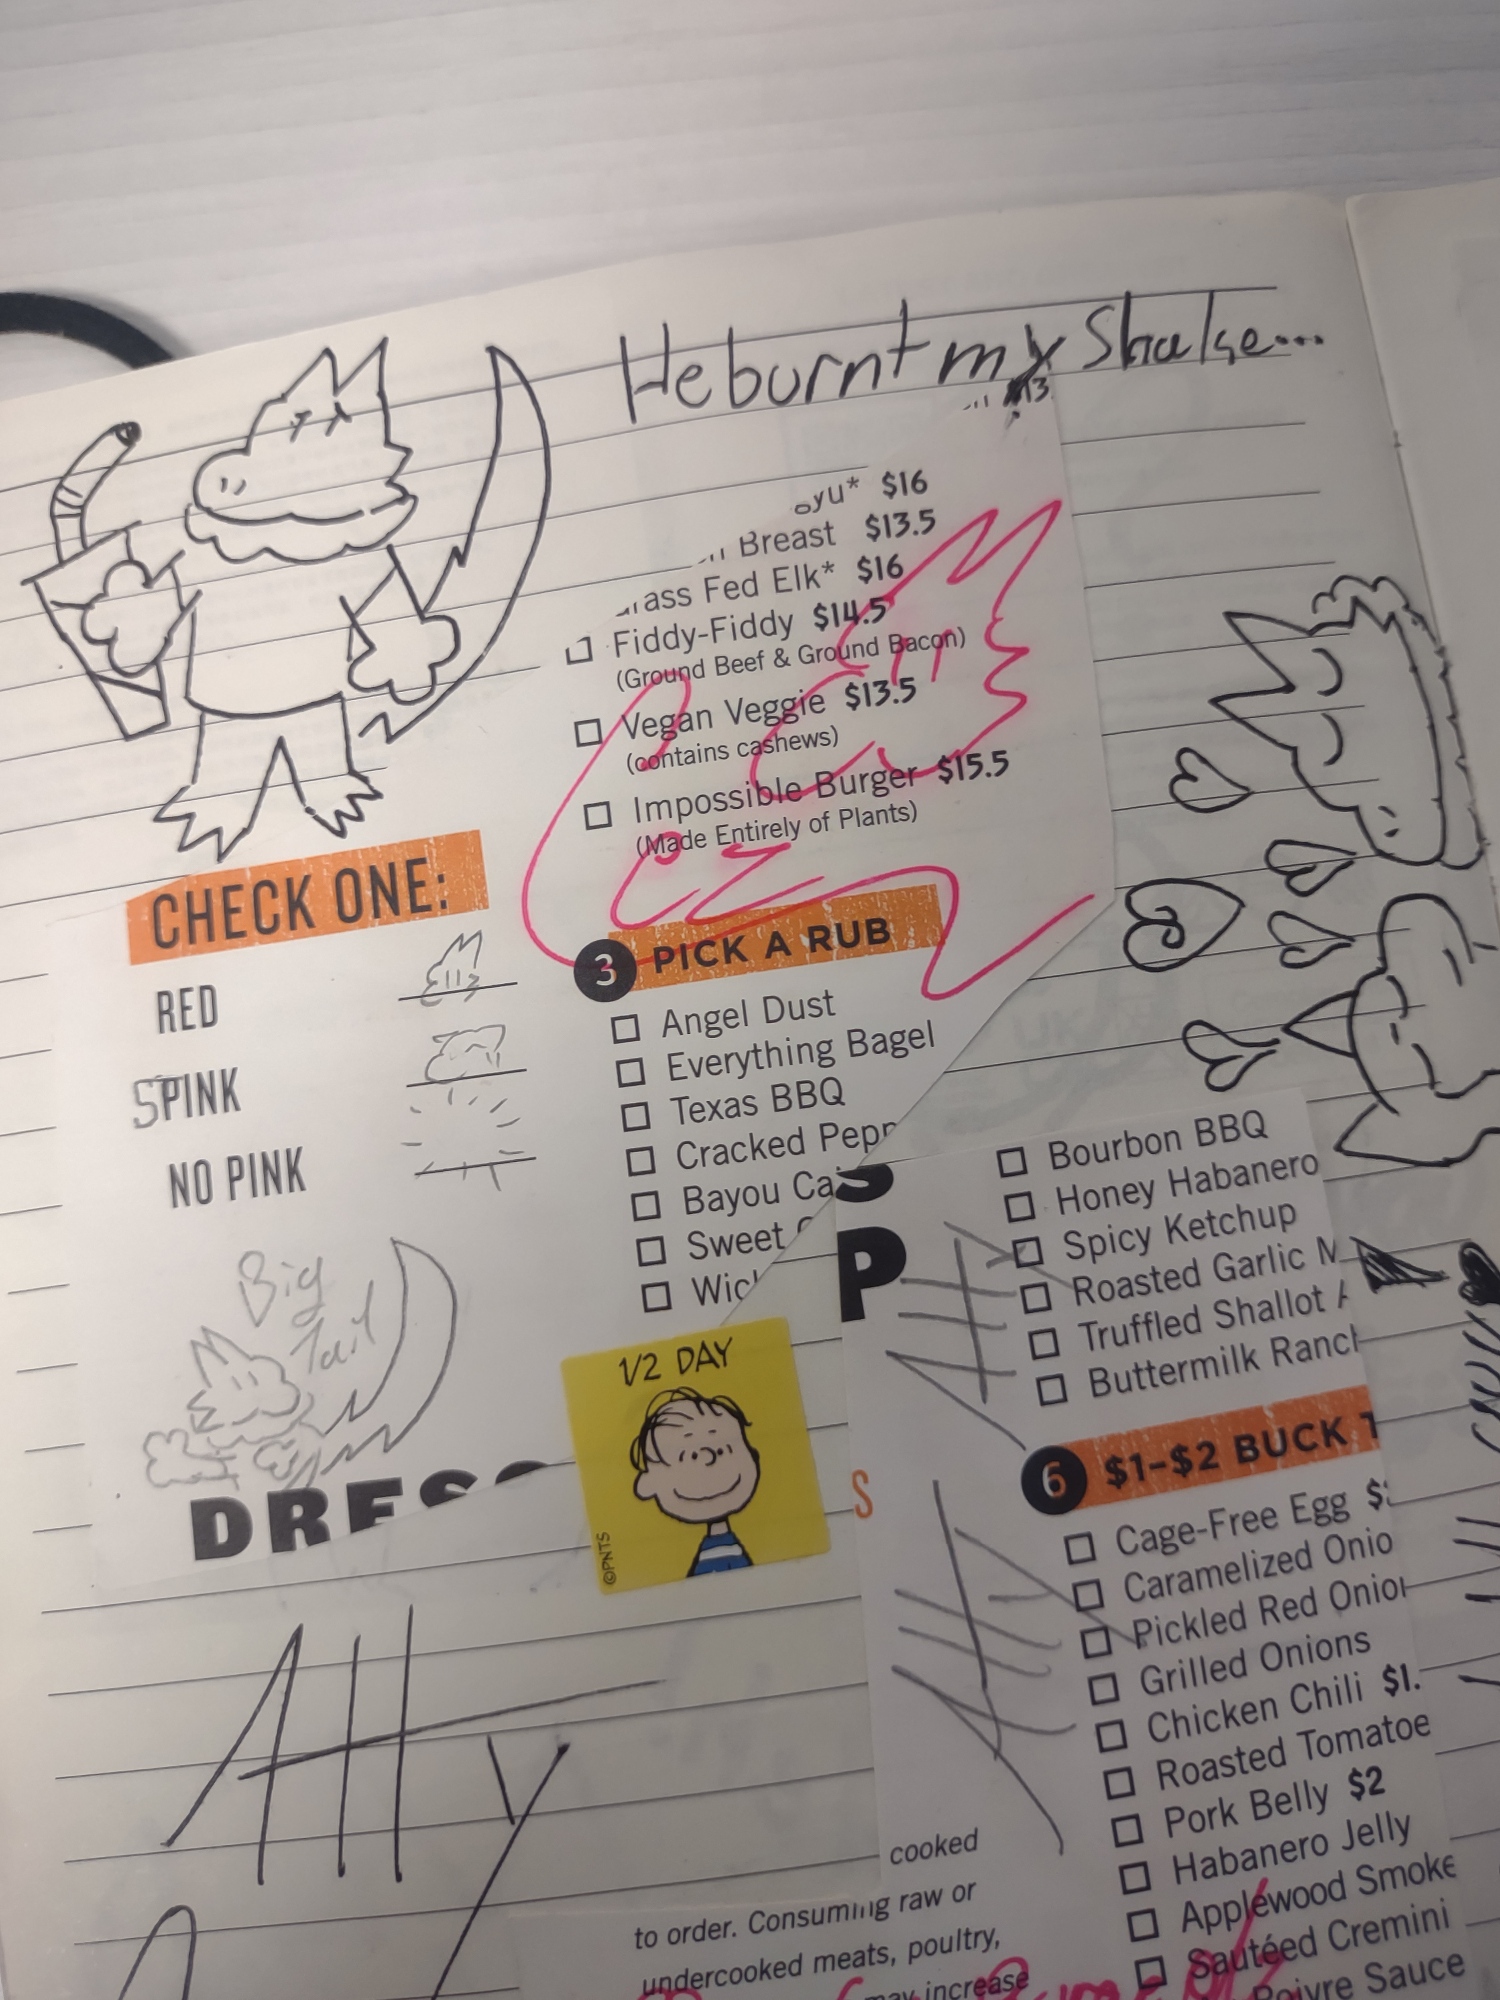 He burnt my Shake...
13
oyu* $16
Breast $13.5
ass Fed Elk* $16
Fiddy-Fiddy $14.5
(Ground Beef & Ground Bacon)
Vegan Veggie $13.5
(contains cashews)
Impossible Burger $15.5
(Made Entirely of Plants)
CHECK ONE:
RED
SPINK
NO PINK
Big
Tail
DRES
3 PICK A RUB
Angel Dust
Everything Bagel
Texas BBQ
Cracked Pepp
Bayou Ca
Sweet
Wic
1/2 DAY
©PNTS
Ally
S
P
S
Bourbon BBQ
Honey Habanero
Spicy Ketchup
Roasted Garlic M
Truffled Shallot A
Buttermilk Ranch
6 $1-$2 BUCK T
Cage-Free Egg $
Caramelized Onio
Pickled Red Onion
Grilled Onions
Chicken Chili $1.
Roasted Tomatoe
Pork Belly $2
Habanero Jelly
Applewood Smoke
Sautéed Cremini
Poivre Sauce
cooked
to order. Consuming raw or
undercooked meats, poultry,
may increase